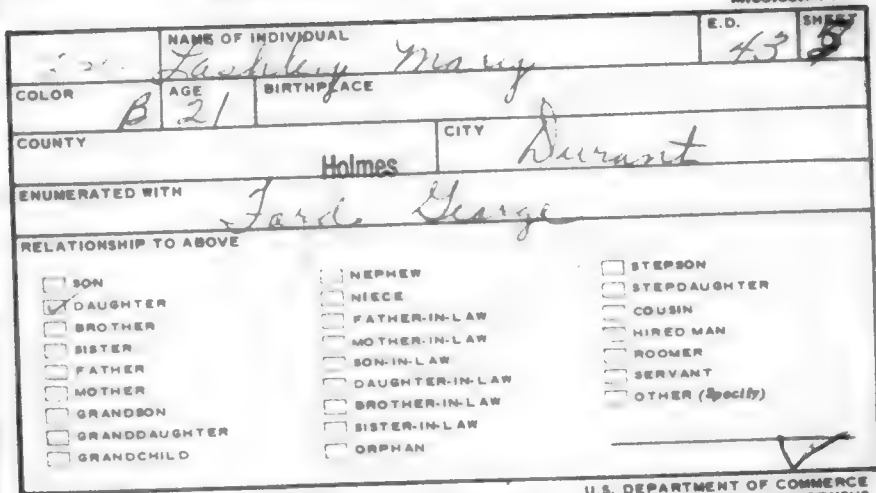 NAME OF INDIVIDUAL E.D. SHEET
Lashley Mary 43 5
COLOR AGE BIRTHPLACE
B 21
COUNTY CITY
Holmes Durant
ENUMERATED WITH
Ford George
RELATIONSHIP TO ABOVE
SON
DAUGHTER
BROTHER
SISTER
FATHER
MOTHER
GRANDSON
GRANDDAUGHTER
GRANDCHILD
NEPHEW
NIECE
FATHER-IN-LAW
MOTHER-IN-LAW
SON-IN-LAW
DAUGHTER-IN-LAW
BROTHER-IN-LAW
SISTER-IN-LAW
ORPHAN
STEPSON
STEPDAUGHTER
COUSIN
HIRED MAN
ROOMER
SERVANT
OTHER (Specify)
U.S. DEPARTMENT OF COMMERCE